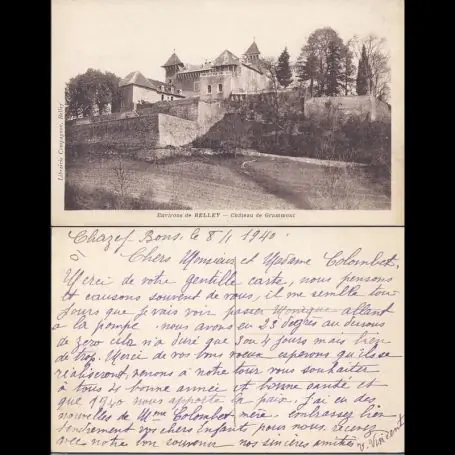 Librairie Campagnon, Belley
Environs de BELLEY — Château de Grammont
Chazey Bons, le 8/1 1940.
Chers Monsieur et Madame Colombet,
Merci de votre gentille carte, nous pensons
et causons souvent de vous, il me semble tou-
jours que je vais voir passer Monique allant
a la pompe. nous avons eu 23 degres au dessous
de zero cela n'a duré que 3 ou 4 jours mais bien
de trop. Merci de vos bons voeux esperons qu'ils se
réaliseront, venons à notre tour vous souhaiter
à tous 4 bonne année et bonne santé et
que 1940 nous apporte la paix. J'ai eu des
nouvelles de Mme Colombet mère. embrassez bien
tendrement vos chers Enfants pour nous. recevez
avec notre bon souvenir nos sincères amitiés
V. Vincent